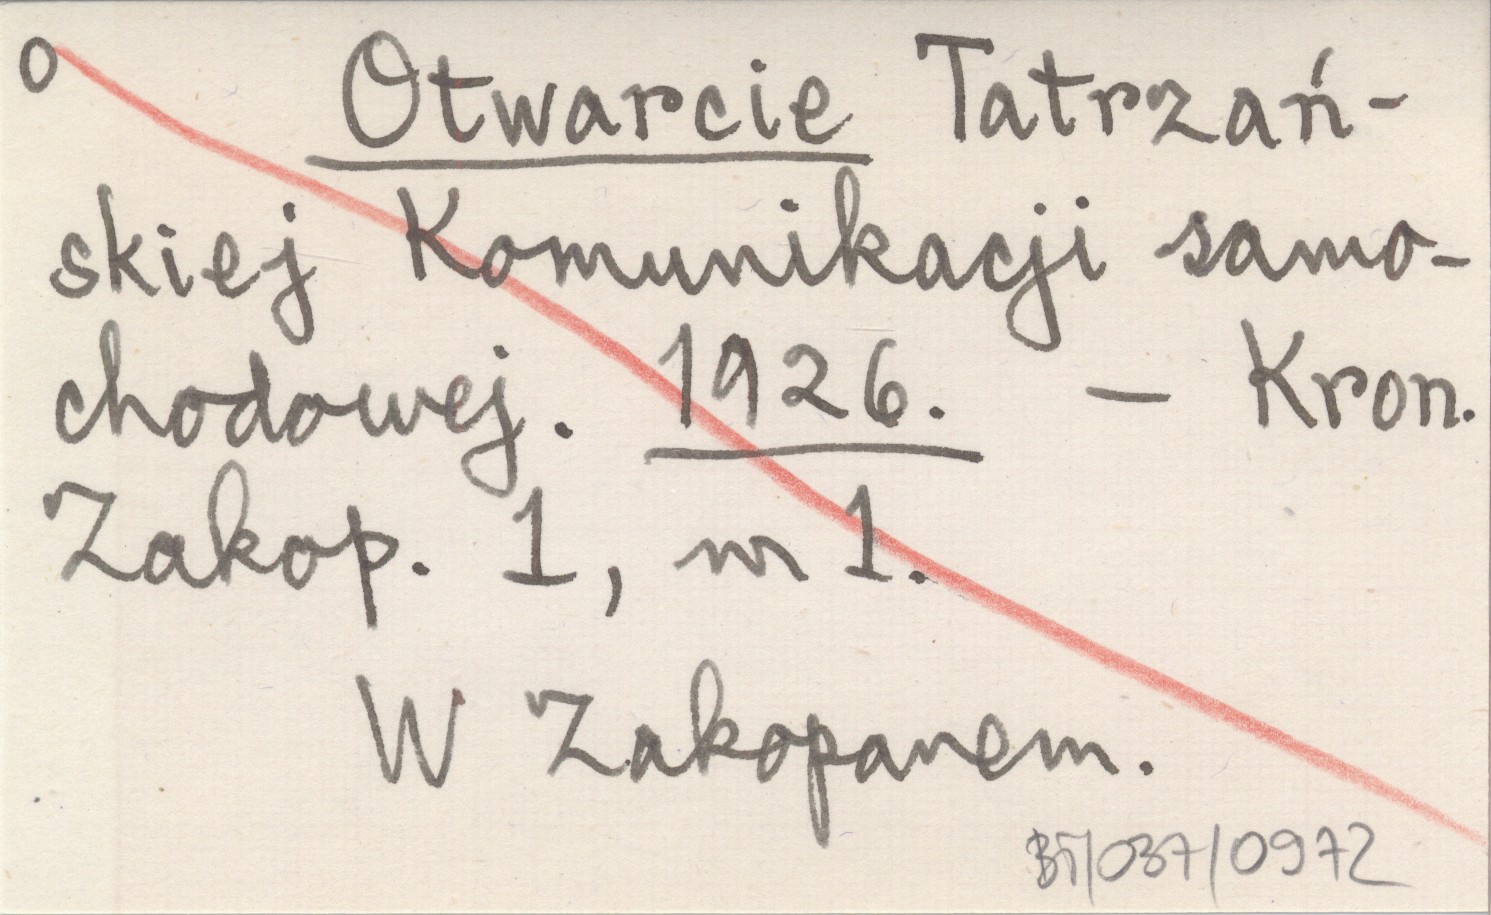 o Otwarcie Tatrzań-
skiej Komunikacji samo-
chodowej. 1926. – Kron.
Zakop. 1, nr 1.
W Zakopanem.
BT/037/0972